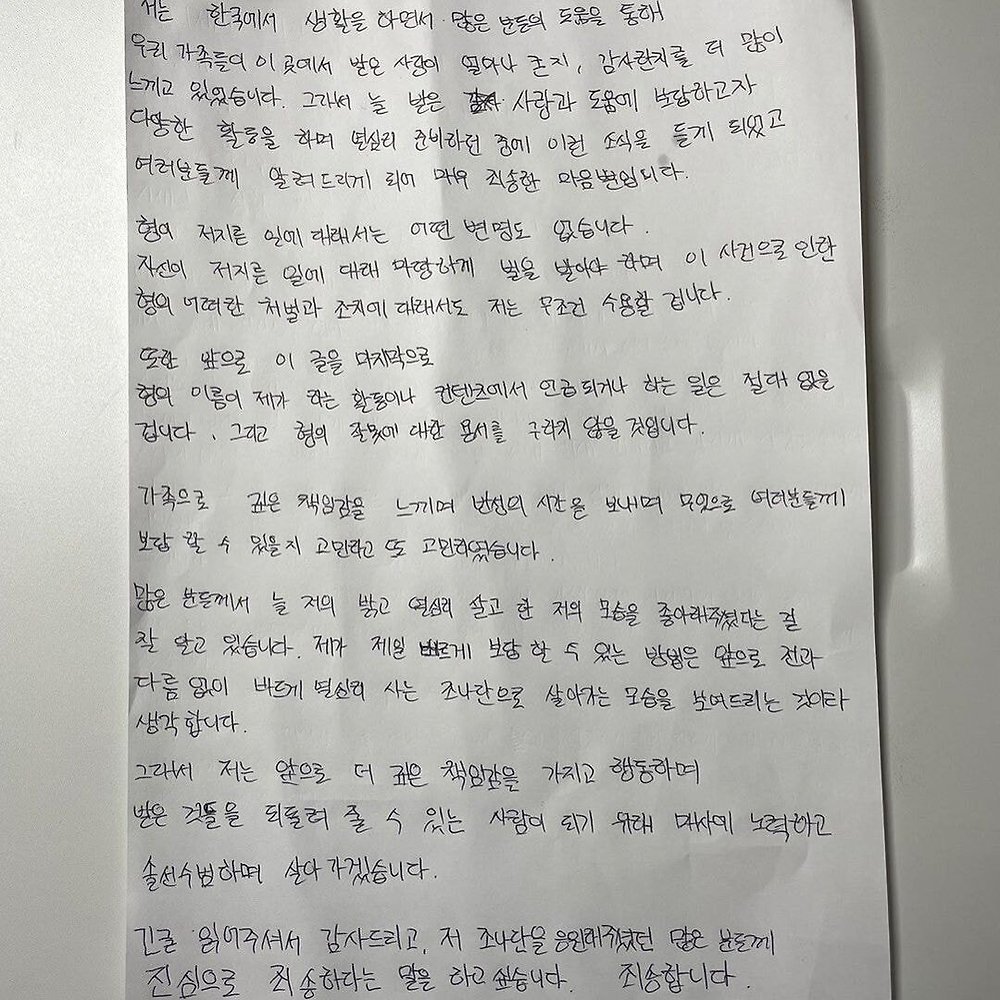 저는 한국에서 생활을 하면서 많은 분들의 도움을 통해
우리 가족들이 이 곳에서 받은 사랑이 얼마나 큰지, 감사한지를 더 많이
느끼고 있었습니다. 그래서 늘 받은 사랑과 도움에 보답하고자
다양한 활동을 하며 열심히 준비하던 중에 이런 소식을 듣게 되었고
여러분들께 알려드리게 되어 매우 죄송한 마음뿐입니다.
형이 저지른 일에 대해서는 어떤 변명도 없습니다.
자신이 저지른 일에 대해 마땅하게 벌을 받아야 하며 이 사건으로 인한
형의 어떠한 처벌과 조치에 대해서도 저는 무조건 수용할 겁니다.
또한 앞으로 이 글을 마지막으로
형의 이름이 제가 하는 활동이나 컨텐츠에서 언급되거나 하는 일은 절대 없을
겁니다. 그리고 형의 잘못에 대한 용서를 구하지 않을 것입니다.
가족으로 깊은 책임감을 느끼며 반성의 시간을 보내며 무엇으로 여러분들께
보답 할 수 있을지 고민하고 또 고민하였습니다.
많은 분들께서 늘 저의 밝고 열심히 살고 한 저의 모습을 좋아해주셨다는 걸
잘 알고 있습니다. 제가 제일 빠르게 보답 할 수 있는 방법은 앞으로 전과
다름 없이 바르게 열심히 사는 조나단으로 살아가는 모습을 보여드리는 것이라
생각합니다.
그래서 저는 앞으로 더 깊은 책임감을 가지고 행동하며
받은 것들을 되돌려 줄 수 있는 사람이 되기 위해 매사에 노력하고
솔선수범하며 살아가겠습니다.
긴글 읽어주셔서 감사드리고, 저 조나단을 응원해주셨던 많은 분들께
진심으로 죄송하다는 말을 하고 싶습니다. 죄송합니다.